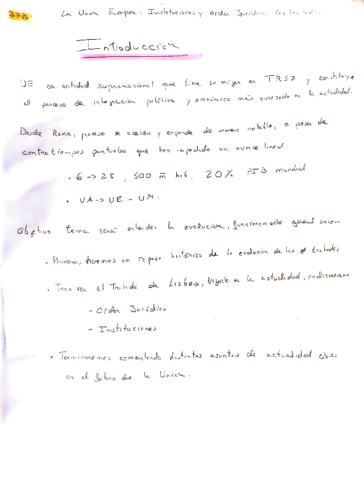 37B La Unión Europea: Instituciones y orden Jurídico.
Introducción
UE es entidad supranacional que tiene su origen en TR57 y constituye
el proceso de integración política y económica más avanzado en la actualidad.
Desde Roma, proceso se acelera y expande de manera notable, a pesar de
contratiempos puntuales que han impedido un avance lineal
• 6 -> 28, 500 m hab, 20% PIB mundial
• UA -> UE - UM.
Objetivo tema será entender la evolución, funcionamiento general
• Primero, haremos un repaso histórico de la evolución de los tratados
• Tras ver el Tratado de Lisboa, vigente en la actualidad, analizaremos
- Orden Jurídico
- Instituciones
• Terminaremos comentando distintos asuntos de actualidad
en el futuro de la Unión.